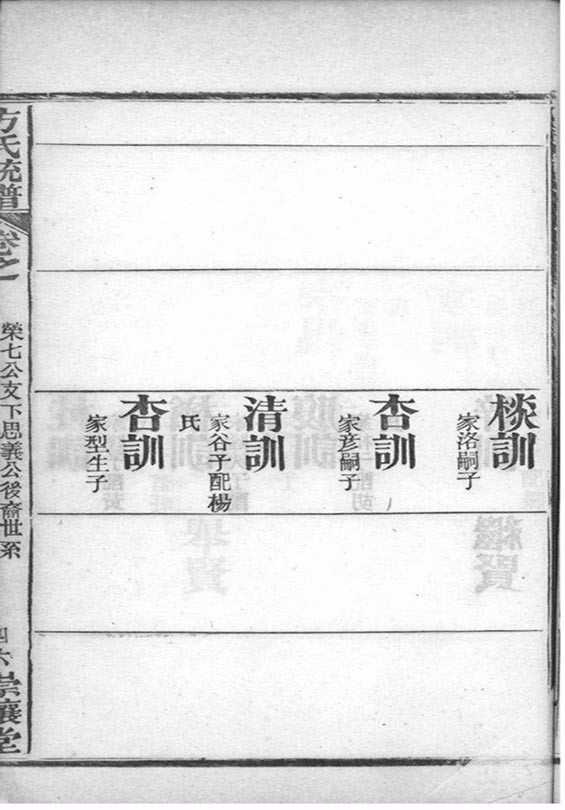 棪訓
家洛嗣子
杏訓
家彦嗣子
清訓
家谷子配楊
氏
杏訓
家型生子
方氏統譜
卷之一
榮七公支下思義公後裔世系
四六
崇讓堂